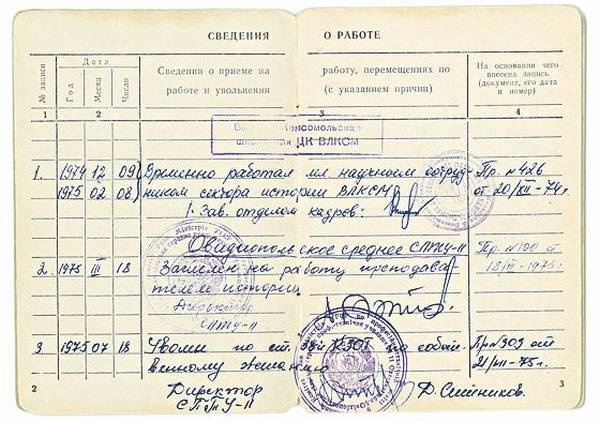 СВЕДЕНИЯ О РАБОТЕ
№ записи
Дата
Год
Месяц
Число
Сведения о приеме на работу, перемещениях по
работе и увольнении (с указанием причин)
На основании чего
внесена запись
(документ, его дата
и номер)
1 2 3 4
Комсомольская
ЦК ВЛКСМ
1. 1974 12 09 Временно работал мл. научным сотруд- Пр. №426
1975 02 08 ником сектора истории ВЛКСМ от 20/XII-74г.
Зав. отделом кадров:
Овидиопольское среднее СПТУ-11 Пр. №190
2. 1975 III 18 Зачислен на работу преподава- 18/III-1975г.
телем истории
Директор
СПТУ-11
3 1975 07 18 Уволен по ст. 38 КЗОТ по собст- Пр №309 от
венному желанию 21/VII-75г.
Директор
СПТУ-11
Д. Сметников.
2 3